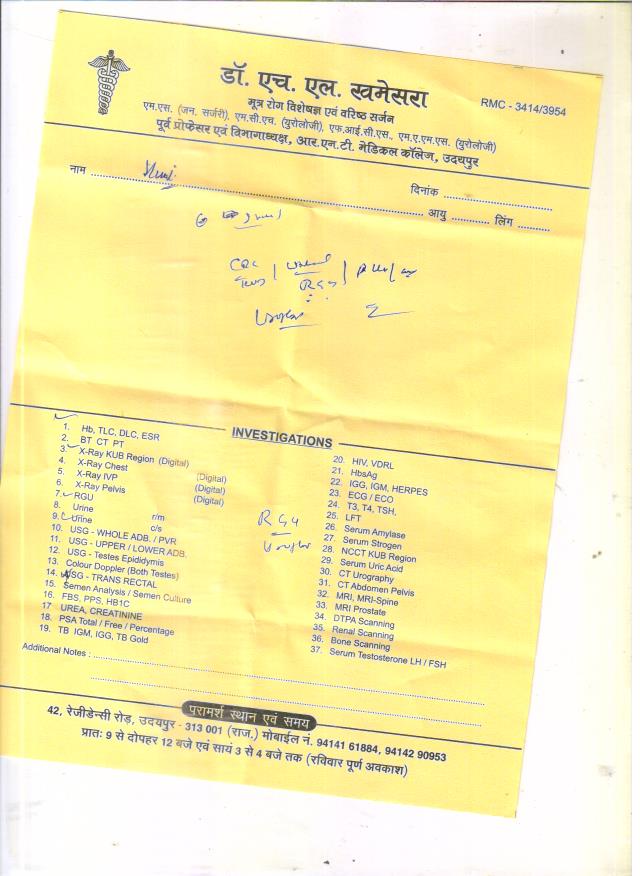 डॉ. एच. एल. खमेसरा
RMC - 3414/3954
मूत्र रोग विशेषज्ञ एवं वरिष्ठ सर्जन
एम.एस. (जन. सर्जरी), एम.सी.एच. (यूरोलोजी), एफ.आई.सी.एस., एम.ए.एम.एस. (यूरोलोजी)
पूर्व प्रोफेसर एवं विभागाध्यक्ष, आर.एन.टी. मेडिकल कॉलेज, उदयपुर
नाम
दिनांक
आयु लिंग
INVESTIGATIONS
1. Hb, TLC, DLC, ESR
2. BT CT PT
3. X-Ray KUB Region (Digital)
4. X-Ray Chest
5. X-Ray IVP (Digital)
6. X-Ray Pelvis (Digital)
7. RGU (Digital)
8. Urine r/m
9. Urine c/s
10. USG - WHOLE ADB. / PVR
11. USG - UPPER / LOWER ADB.
12. USG - Testes Epididymis
13. Colour Doppler (Both Testes)
14. USG - TRANS RECTAL
15. Semen Analysis / Semen Culture
16. FBS, PPS, HB1C
17 UREA, CREATININE
18. PSA Total / Free / Percentage
19. TB IGM, IGG, TB Gold
RGU
20. HIV, VDRL
21. HbsAg
22. IGG, IGM, HERPES
23. ECG / ECO
24. T3, T4, TSH,
25. LFT
26. Serum Amylase
27. Serum Strogen
28. NCCT KUB Region
29. Serum Uric Acid
30. CT Urography
31. CT Abdomen Pelvis
32. MRI, MRI-Spine
33. MRI Prostate
34. DTPA Scanning
35. Renal Scanning
36. Bone Scanning
37. Serum Testosterone LH / FSH
Additional Notes :
परामर्श स्थान एवं समय
42, रेजीडेन्सी रोड़, उदयपुर - 313 001 (राज.) मोबाईल नं. 94141 61884, 94142 90953
प्रातः 9 से दोपहर 12 बजे एवं सायं 3 से 4 बजे तक (रविवार पूर्ण अवकाश)